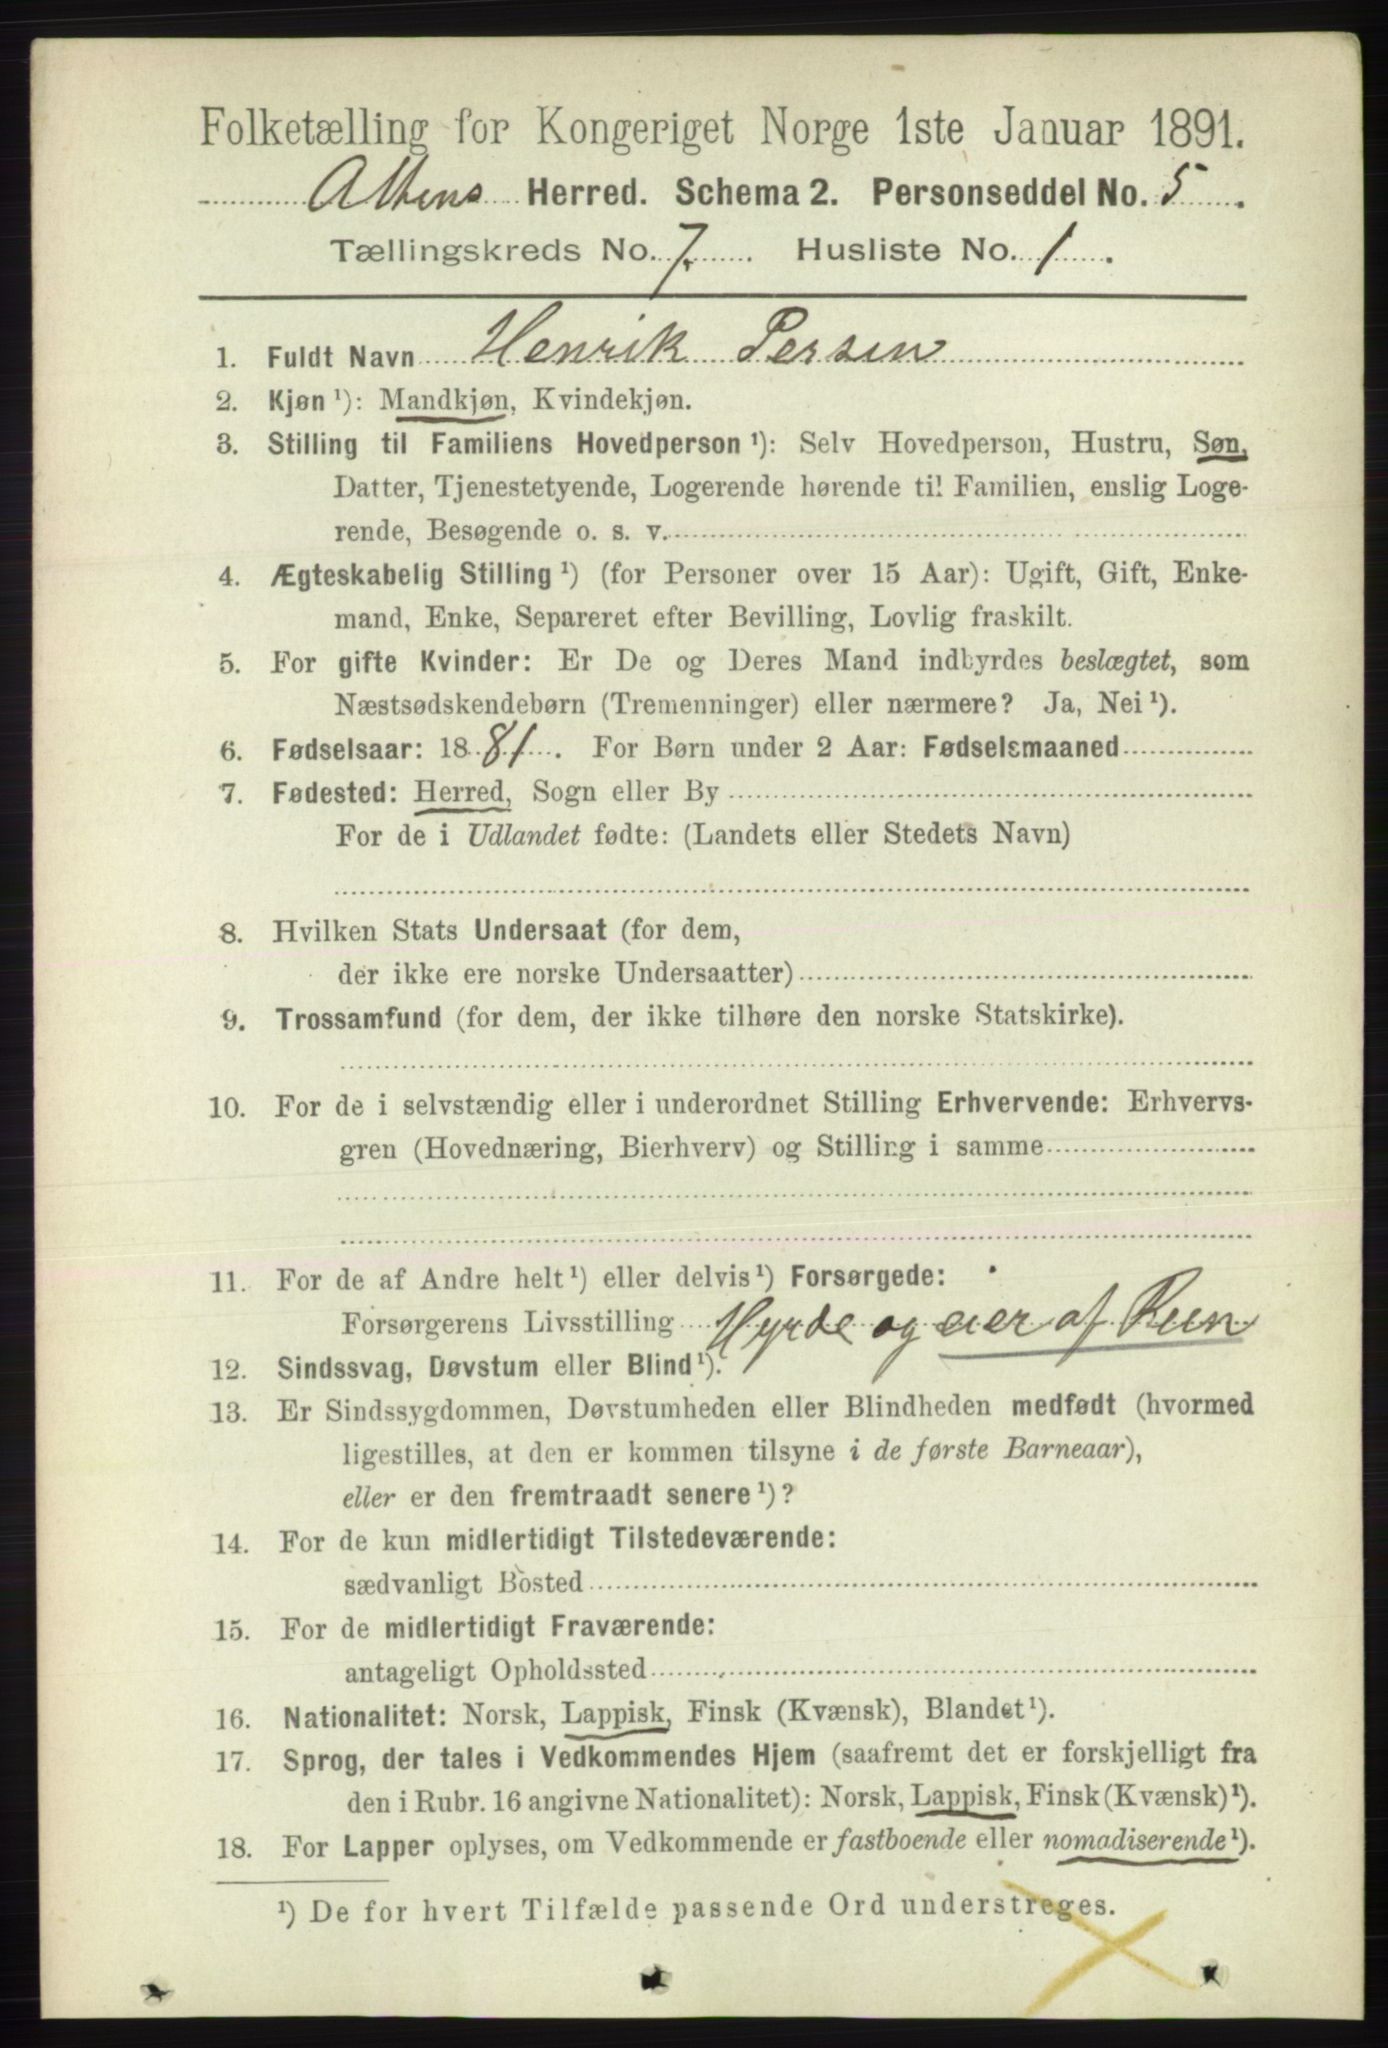 Folketælling for Kongeriget Norge 1ste Januar 1891.
Altens Herred. Schema 2. Personseddel No. 5.
Tællingskreds No. 7. Husliste No. 1.
1. Fuldt Navn Henrik Persen
2. Kjøn ¹): Mandkjøn, Kvindekjøn.
3. Stilling til Familiens Hovedperson ¹): Selv Hovedperson, Hustru, Søn,
Datter, Tjenestetyende, Logerende hørende til Familien, enslig Loge-
rende, Besøgende o. s. v.
4. Ægteskabelig Stilling ¹) (for Personer over 15 Aar): Ugift, Gift, Enke-
mand, Enke, Separeret efter Bevilling, Lovlig fraskilt.
5. For gifte Kvinder: Er De og Deres Mand indbyrdes beslægtet, som
Næstsødskendebørn (Tremenninger) eller nærmere? Ja, Nei ¹).
6. Fødselsaar: 1881. For Børn under 2 Aar: Fødselsmaaned
7. Fødested: Herred, Sogn eller By
For de i Udlandet fødte: (Landets eller Stedets Navn)
8. Hvilken Stats Undersaat (for dem,
der ikke ere norske Undersaatter)
9. Trossamfund (for dem, der ikke tilhøre den norske Statskirke).
10. For de i selvstændig eller i underordnet Stilling Erhvervende: Erhvervs-
gren (Hovednæring, Bierhverv) og Stilling i samme
11. For de af Andre helt ¹) eller delvis ¹) Forsørgede:
Forsørgerens Livsstilling Hyrde og eier af Reen
12. Sindssvag, Døvstum eller Blind ¹).
13. Er Sindssygdommen, Døvstumheden eller Blindheden medfødt (hvormed
ligestilles, at den er kommen tilsyne i de første Barneaar),
eller er den fremtraadt senere ¹)?
14. For de kun midlertidigt Tilstedeværende:
sædvanligt Bosted
15. For de midlertidigt Fraværende:
antageligt Opholdssted
16. Nationalitet: Norsk, Lappisk, Finsk (Kvænsk), Blandet ¹).
17. Sprog, der tales i Vedkommendes Hjem (saafremt det er forskjelligt fra
den i Rubr. 16 angivne Nationalitet): Norsk, Lappisk, Finsk (Kvænsk) ¹).
18. For Lapper oplyses, om Vedkommende er fastboende eller nomadiserende ¹).
¹) De for hvert Tilfælde passende Ord understreges.